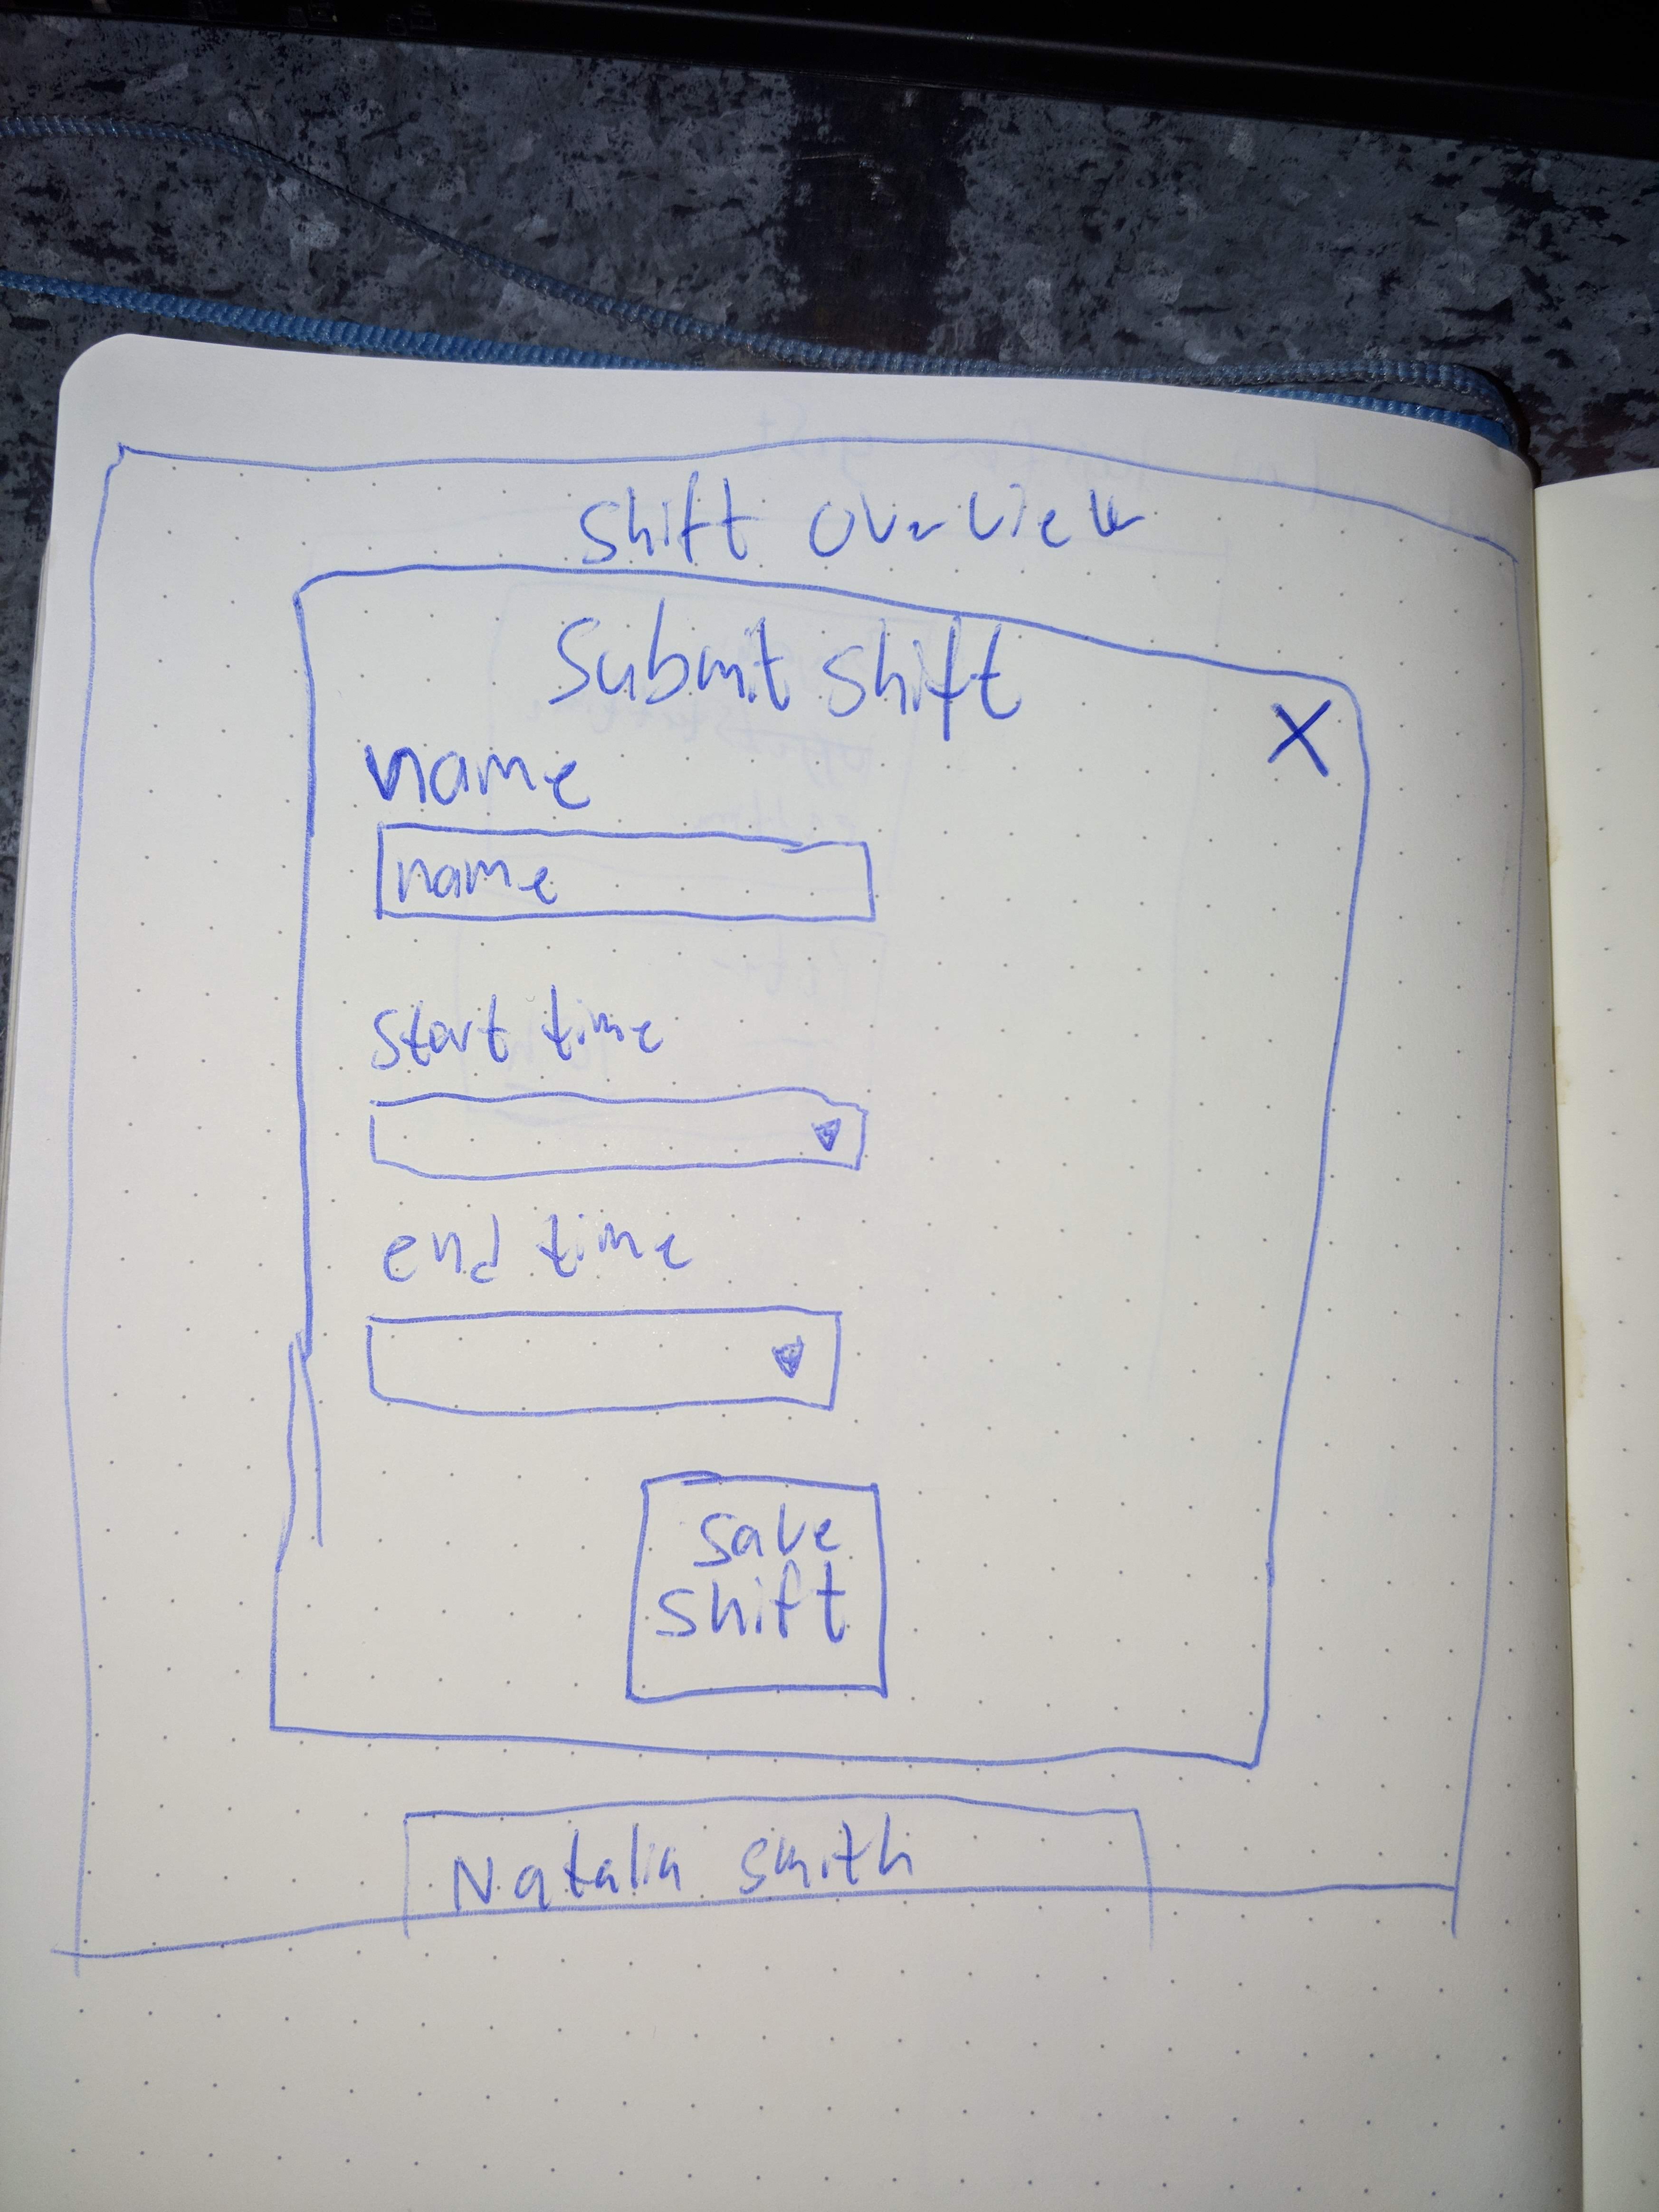 shift overview
Submit shift
X
name
name
start time
end time
save
shift
Natalia smith